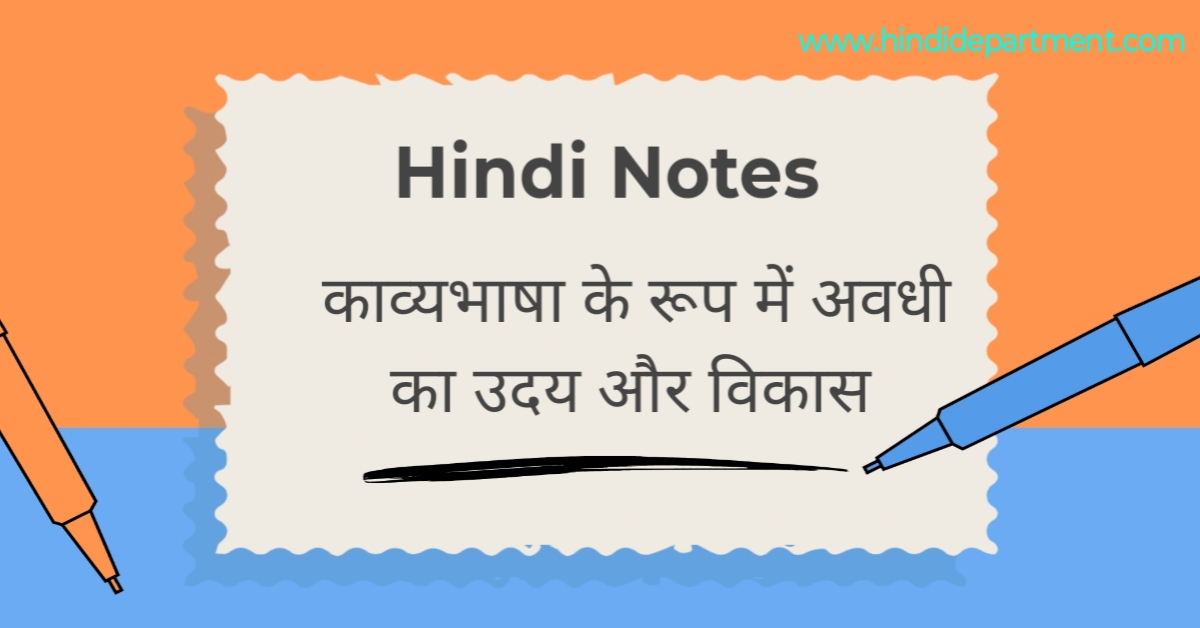 www.hindidepartment.com
Hindi Notes
काव्यभाषा के रूप में अवधी
का उदय और विकास